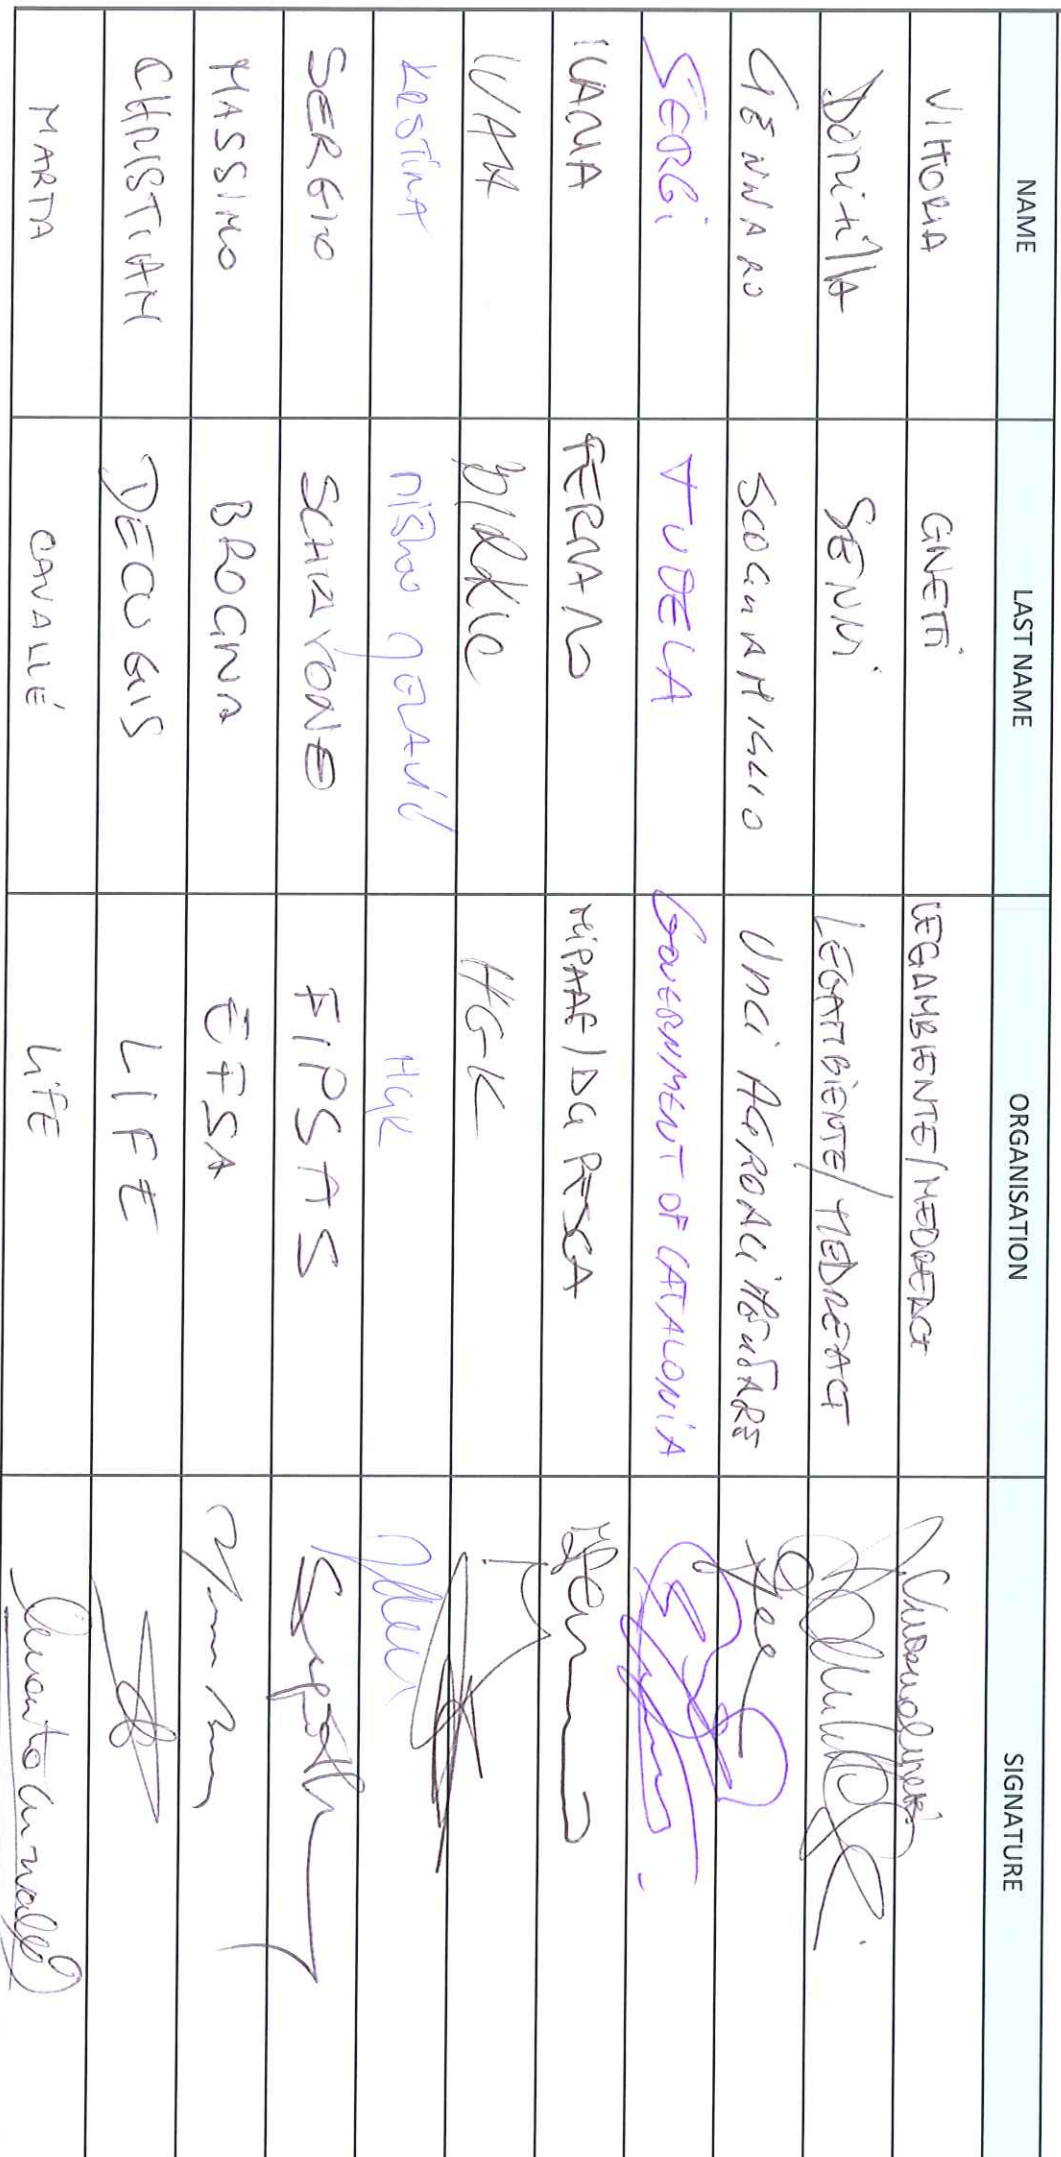 NAME LAST NAME ORGANISATION SIGNATURE
VITTORIA GNETTI LEGAMBIENTE/MEDREACT
Domitilla SENNI LEGAMBIENTE/MEDREACT
GENNARO SCOGNAMIGLIO UNCI AGROALIMENTARE
SERGI TUDELA GOVERNMENT OF CATALONIA
FERNANO MIPAAF/DG PESCA
IVAN BIRKIC HGK
KRISTINA MIŠKOV JELAVIĆ HGK
SERGIO SCHIAVONE FIPSAS
MASSIMO BROGNA EFSA
CHRISTIAN DECUGIS LIFE
MARTA CAVALLÉ LIFE